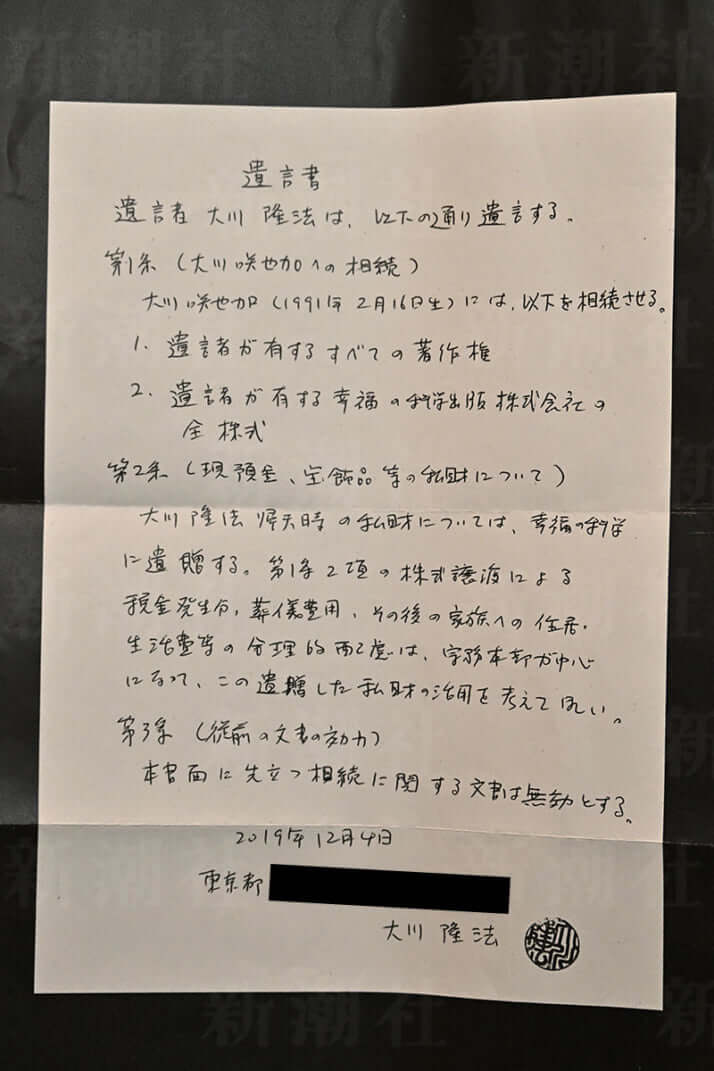 遺言書
遺言者 大川 隆法は、以下の通り遺言する。
第1条(大川咲也加への相続)
大川咲也加(1991年2月16日生)には、以下を相続させる。
1、遺言者が有するすべての著作権
2、遺言者が有する幸福の科学出版株式会社の
全株式
第2条(現預金、宝飾品等の私財について)
大川隆法帰天時の私財については、幸福の科学
に遺贈する。第1条2項の株式譲渡による
税金発生分、葬儀費用、その後の家族への住居・
生活費等の合理的配慮は、宗務本部が中心
になって、この遺贈した私財の活用を考えてほしい。
第3条(従前の文書の効力)
本書面に先立つ相続に関する文書は無効とする。
2019年12月4日
東京都
大川 隆法
新潮社